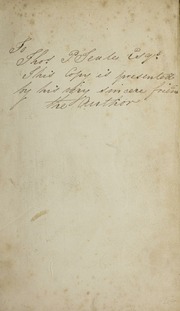 To
Thos P Scales Esqr
This Copy is presented
by his very sincere friend
the Author